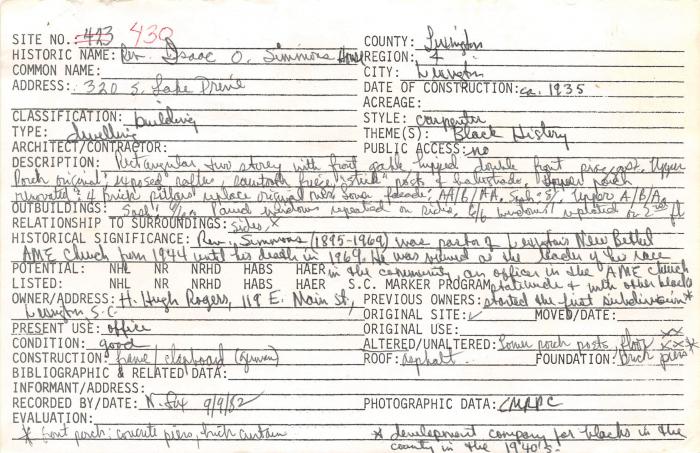 SITE NO. 423 430
COUNTY: Lexington
HISTORIC NAME: Rev. Isaac O. Simmons House
REGION: 4
COMMON NAME:
CITY: Lexington
ADDRESS: 320 S. Lake Drive
DATE OF CONSTRUCTION: ca. 1935
ACREAGE:
CLASSIFICATION: building
STYLE: carpenter
TYPE: dwelling
THEME(S): Black History
ARCHITECT/CONTRACTOR:
PUBLIC ACCESS: no
DESCRIPTION: Rectangular two storey with front gable hipped double front Upper
Porch original: exposed rafters, sawtooth "stick" posts & balustrade. Lower porch
renovated: 4 brick pillars replace original Lower facade: AA/B/AA, Upper A/B/A
OUTBUILDINGS: windows repeated on sides, 6/6 windows on 2nd fl
RELATIONSHIP TO SURROUNDINGS: sides x
HISTORICAL SIGNIFICANCE: Rev. Simmons (1895-1969) was pastor of Lexington's New Bethel
AME Church from 1944 until his death in 1969. He was viewed as the leader of his race
POTENTIAL: NHL NR NRHD HABS HAER in the community, an officer in the AME Church
LISTED: NHL NR NRHD HABS HAER S.C. MARKER PROGRAM statewide & with other blacks
OWNER/ADDRESS: H. Hugh Rogers, 119 E. Main St., PREVIOUS OWNERS: started the first subdivision*
Lexington, S.C.
ORIGINAL SITE: ✓ MOVED/DATE:
PRESENT USE: office
ORIGINAL USE:
CONDITION: good
ALTERED/UNALTERED: Lower porch posts, floor xx
CONSTRUCTION: frame/clapboard (German)
ROOF: asphalt FOUNDATION: Brick piers
BIBLIOGRAPHIC & RELATED DATA:
INFORMANT/ADDRESS:
RECORDED BY/DATE: N. Fox 9/9/82
PHOTOGRAPHIC DATA: CMRPC
EVALUATION:
* front porch: concrete piers, brick curtain
* development company for blacks in the
county in the 1940's.